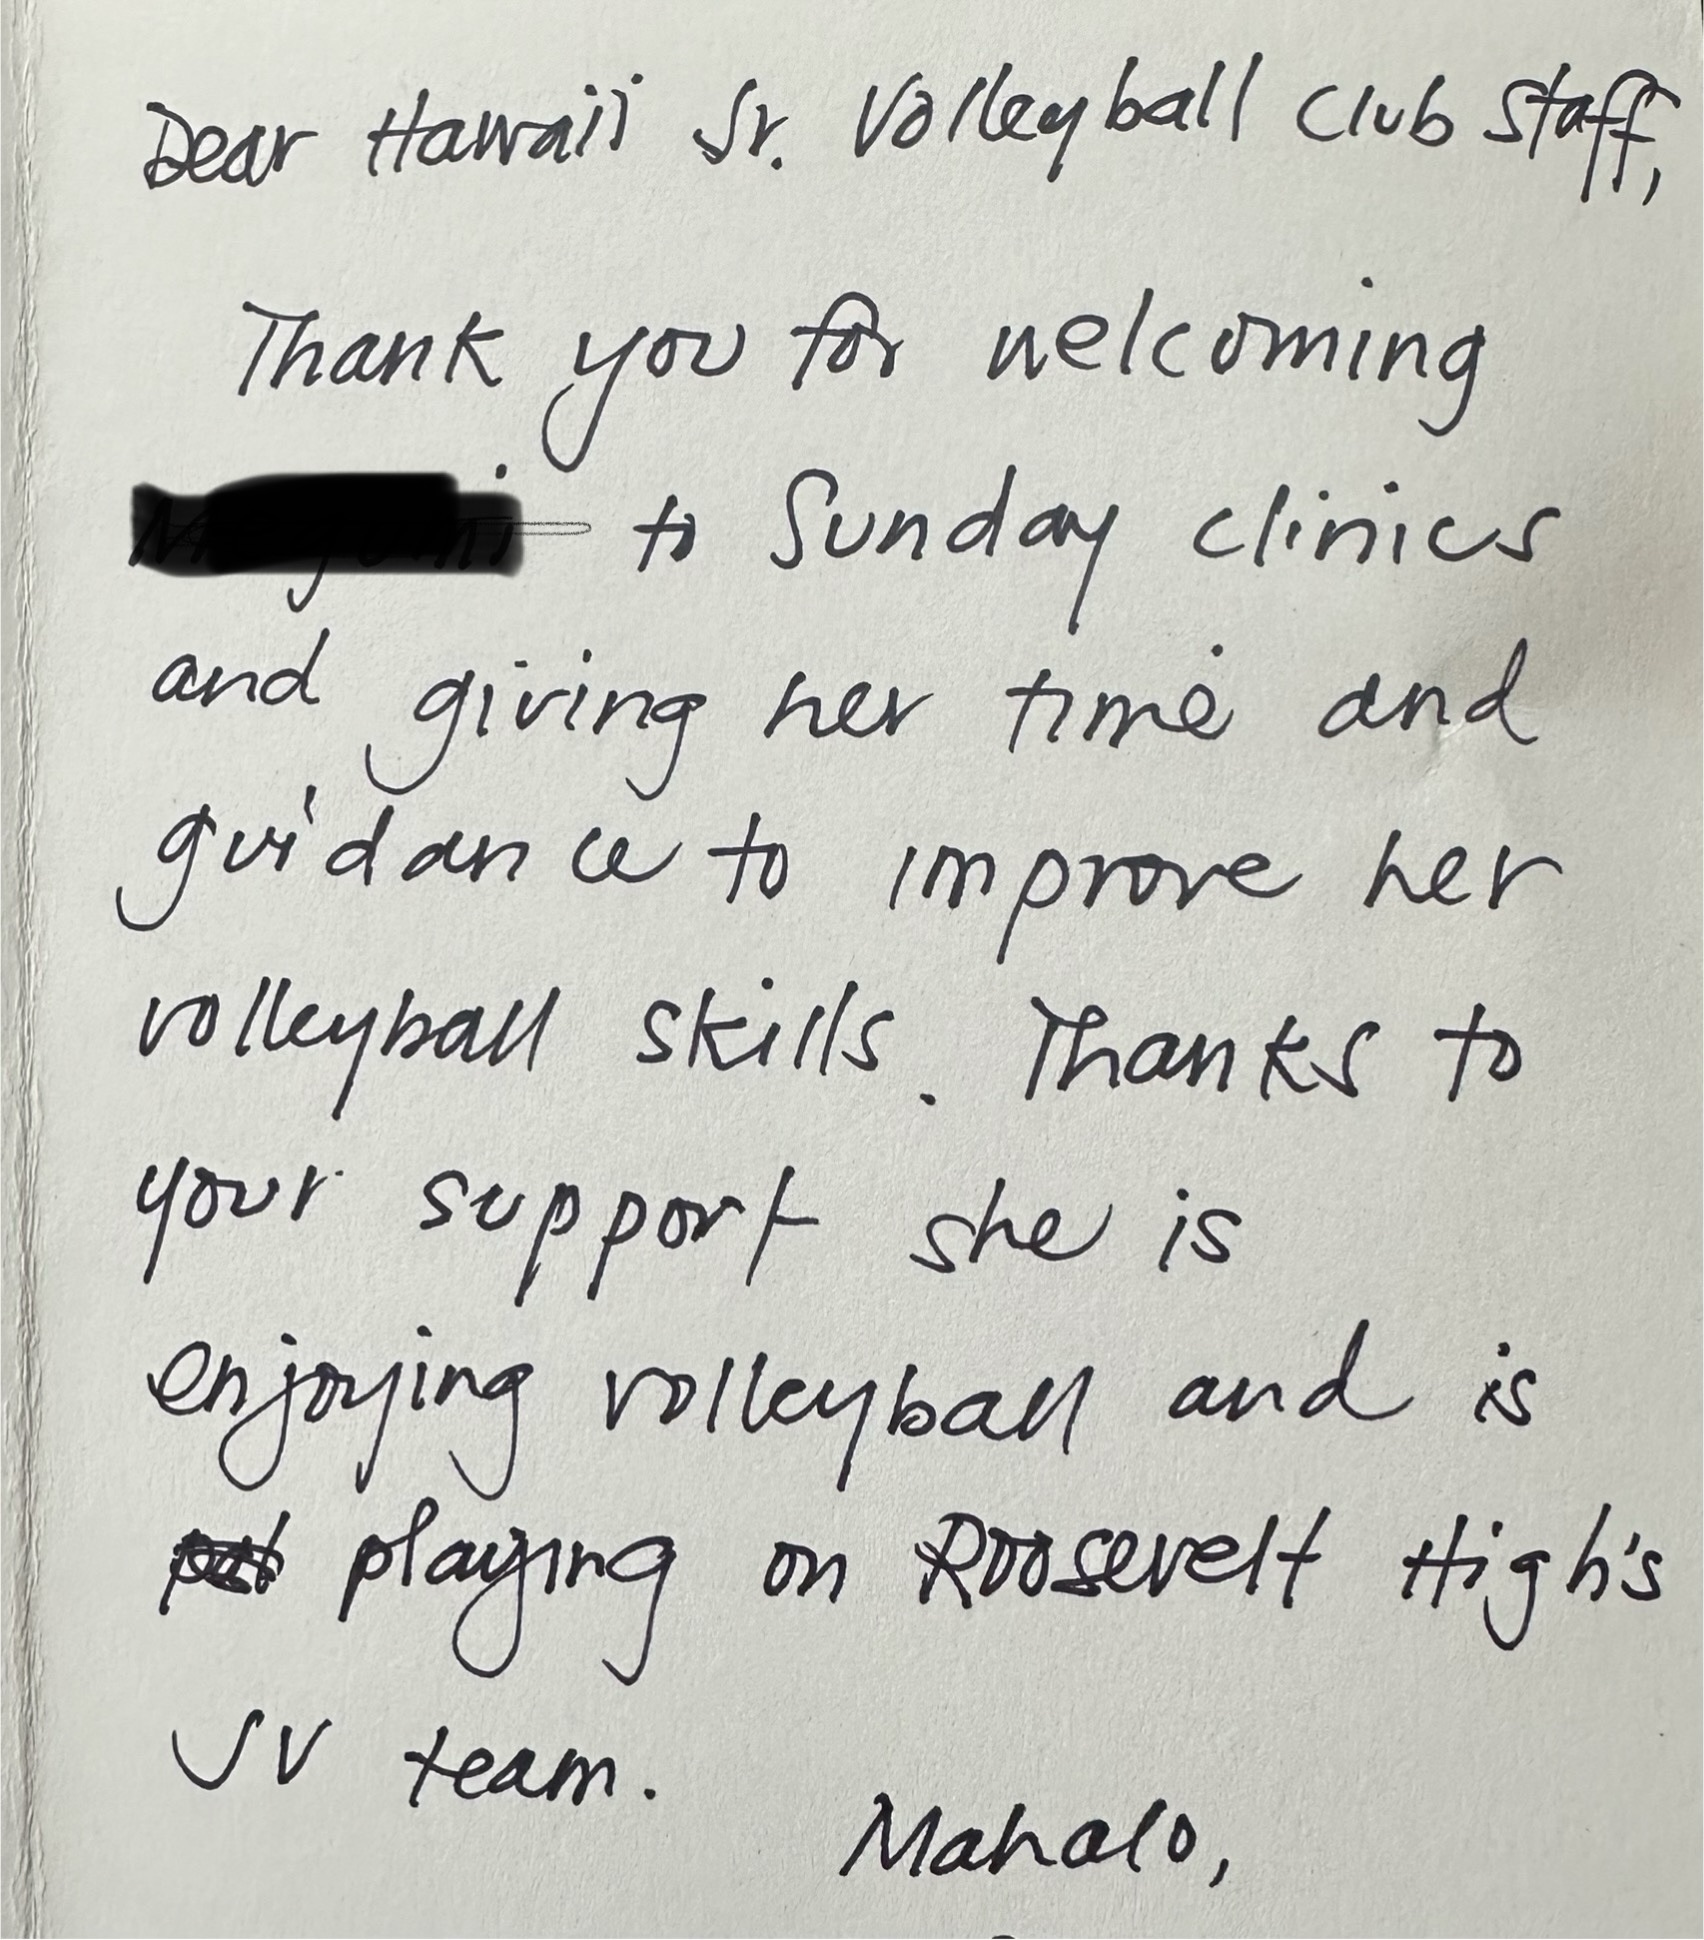 Dear Hawaii Jr. Volleyball Club Staff,
Thank you for welcoming
to Sunday clinics
and giving her time and
guidance to improve her
volleyball skills. Thanks to
your support she is
enjoying volleyball and is
playing on Roosevelt High's
JV team.
Mahalo,